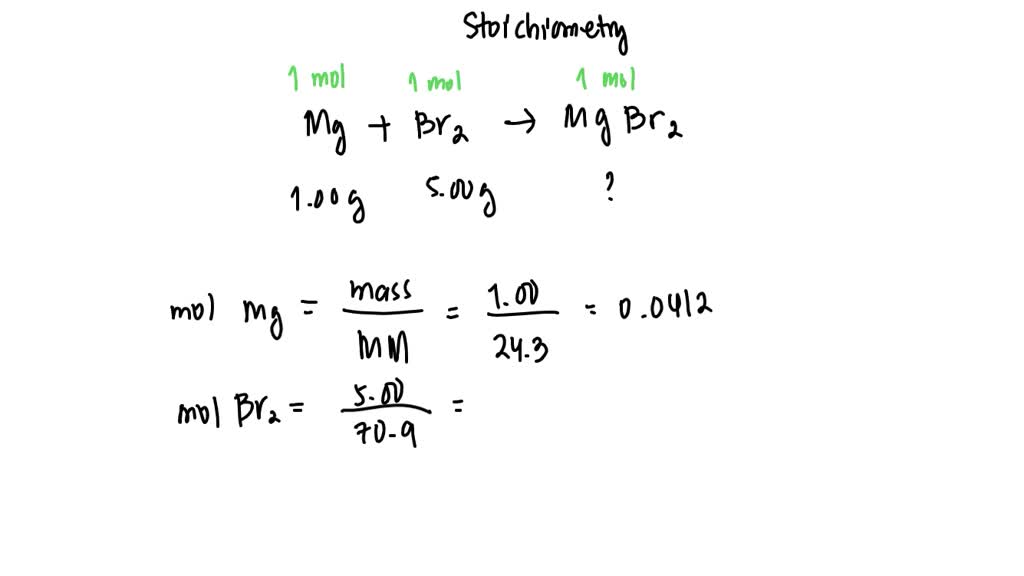 Stoichiometry
1 mol 1 mol 1 mol
Mg + Br2 → MgBr2
1.00g 5.00g ?
mol Mg = mass / MM = 1.00 / 24.3 = 0.0412
mol Br2 = 5.00 / 70.9 =